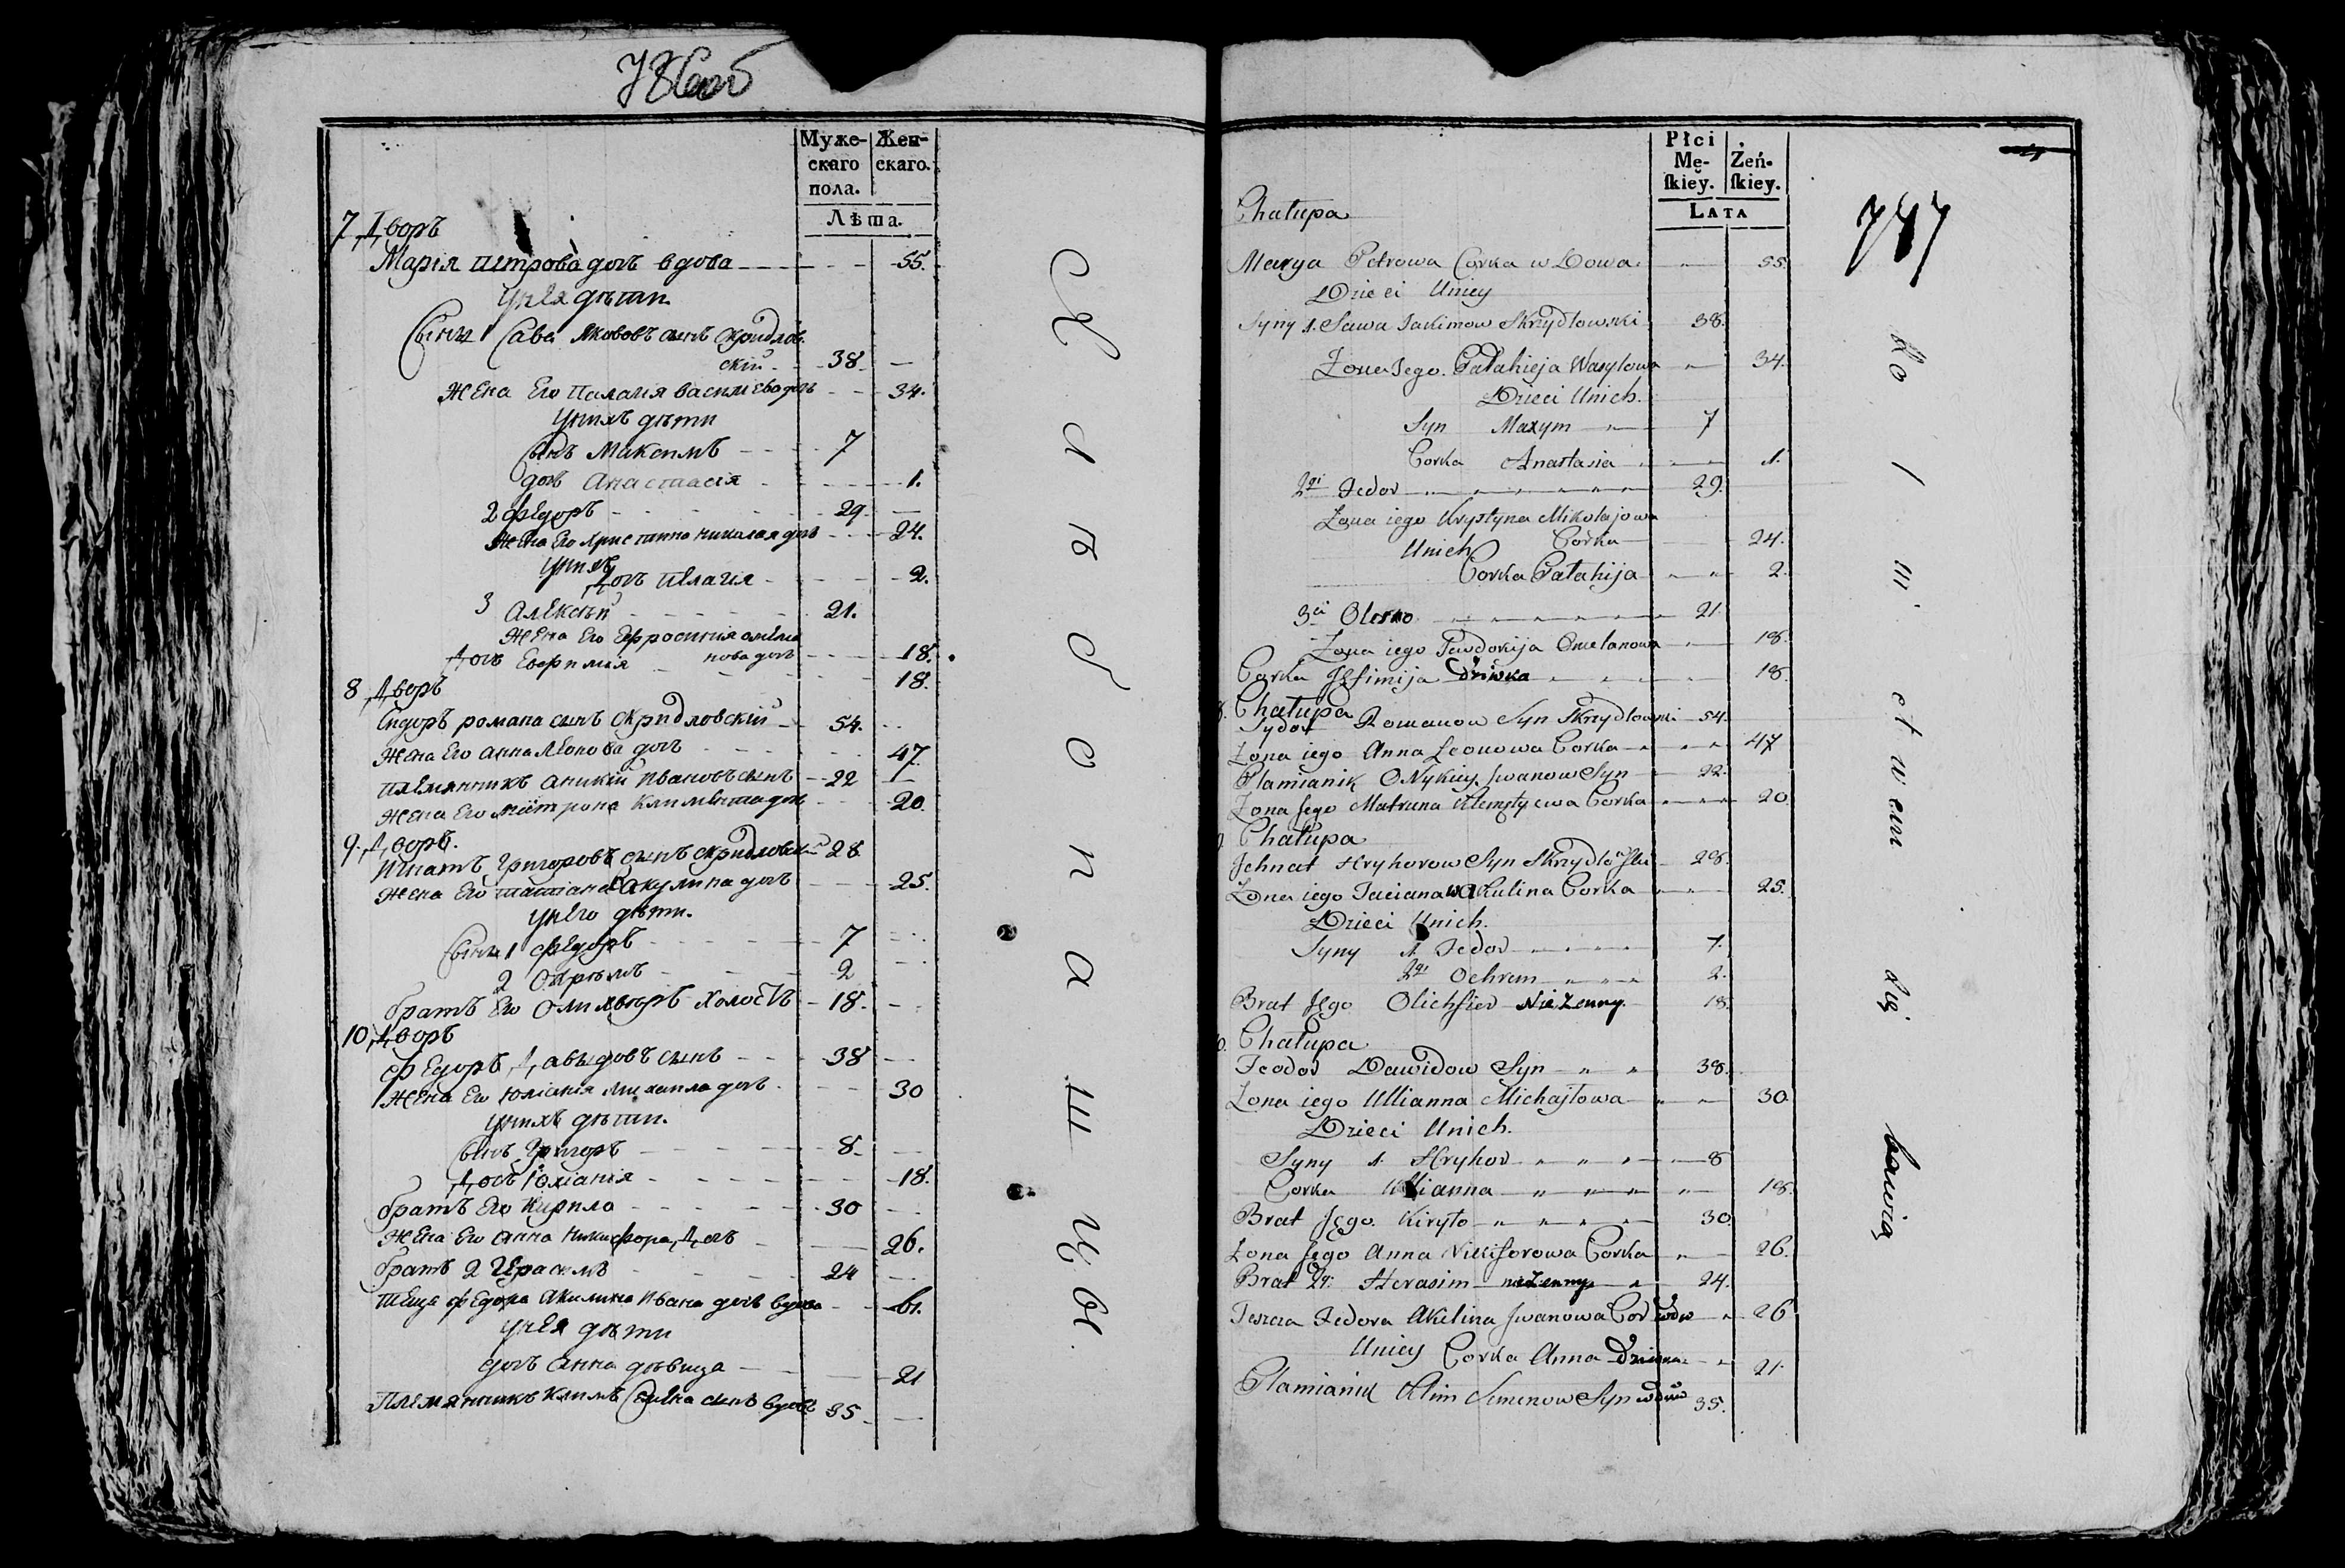 Муже-
скаго
пола.
Жен-
скаго.
Лѣта.
7 Дворъ
Марія петрова дочь вдова 55.
у нея дѣти
Сынъ 1 Сава Якововъ сынъ скридлов
скій 38
жена его Палагія василиева дочь 34.
у нихъ дѣти
сынъ Максимъ 7
дочь Анастасія 1.
2 Федоръ 29
жена его христина николая дочь 24.
у нихъ
дочь пелагія 2.
3 Алексѣй 21.
жена его Ефросинія омеля
нова дочь 18.
дочь Евфимія 18.
8 Дворъ
Сидоръ романа сынъ скридловскій 54.
жена его анна Леонова дочь 47
племянникъ аникій Ивановъ сынъ 22
жена его метрона климентія дочь 20
9. Дворъ.
Игнатъ Григоровъ сынъ скридловскій 28
жена его татіана Акулина дочь 25.
у него дѣти.
Сыны 1 Федоръ 7
2 Охрѣмъ 2
братъ его олихвѣръ холостъ 18.
10 Дворъ
Федоръ Давыдовъ сынъ 38
жена его юліанія михаила дочь 30
у нихъ дѣти.
сынъ Григоръ 8
Дочь Юліанія 18.
братъ его Кирило 30
жена его анна никифора дочь 26.
братъ 2 Герасимъ 24
теща федора акилина ивана дочь вдова
у нея дѣти
дочь анна дѣвица 21
Племянникъ климъ сынъ вдовъ 35
Хлѣбопашцы
Płci
Mę-
ſkiey.
Żeń-
ſkiey.
LATA
Chałupa
Marya Petrowa Corka w Dowa 55.
Dzieci Uniey
Syny 1. Sawa Jackimow Skrzydłowski 38.
Zona Jego Pałahieja Wasylowa 34.
Dzieci Unich.
Syn Maxym 7
Corka Anastasia 1.
2gi Fedor 29.
Zona iego Krystyna Mikołajowa
Corka 24.
Unich
Corka Pałahija 2
3ci Olexo 21
Zona iego Jewdokija Omelanowa 18.
Corka Jefimija dziwka 18.
8. Chałupa
Sydor Romanow Syn Skrzydłowski 54.
Zona iego Anna Leonowa Corka 47
Plamianik ONykiey Jwanow Syn 22.
Zona Jego Matruna Klemętyewa Corka 20
9 Chałupa
Jehnat Hryhorow Syn Skrzydłowski 28.
Zona iego Taciana wakulina Corka 25.
Dzieci Unich.
Syny 1 Fedor 7.
2gi Ochrem 2.
Brat Jego Olichfier Nie Zenny. 18.
10. Chałupa
Teodor Dawidow Syn 38.
Zona iego Ullianna Michajłowa 30.
Dzieci Unich.
Syny 1. Hryhor 8
Corka Ullianna 18.
Brat Jego. Kiryło 30
Zona Jego Anna Nikiforowa Corka 26.
Brat 2gi Herasim nieżenny 24.
Teszcza Fedora Akilina Jwanowa Cor wdw 26
Uniey Corka Anna dziewka 21.
Plamianik Klim Simenow Syn wdow 35.
787
Rolnictwem się bawią